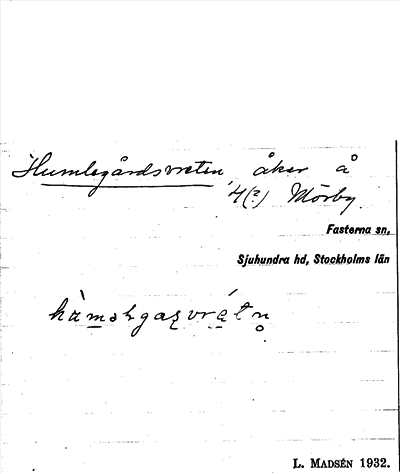 Humlegårdsvreten, åker å
4(?) Mörby.
Fasterna sn,
Sjuhundra hd, Stockholms län
L. MADSÉN 1932.